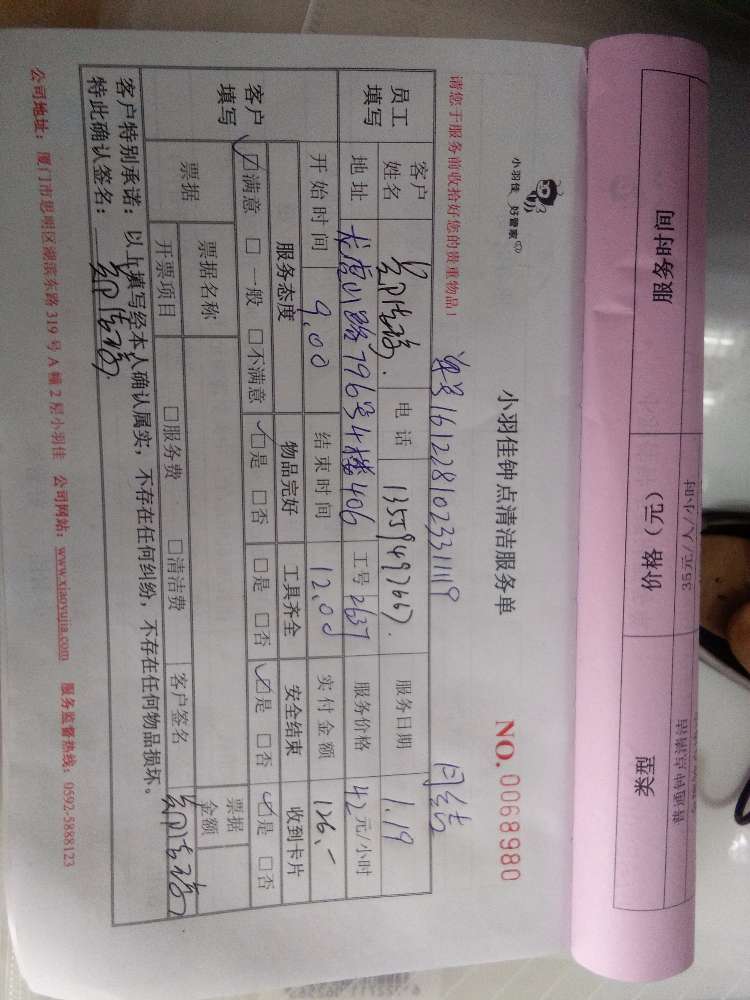 服务时间 价格（元） 类型
35元/人/小时 普通钟点清洁
小羽佳 好管家
小羽佳钟点清洁服务单 NO. 0068980
单号161228102331119 月结
请您于服务前收拾好您的贵重物品！
员工填写 客户姓名 电话 13559497667. 服务日期 1.19
地址 龙虎山路796号4楼406 工号 2637 服务价格 42元/小时
开始时间 9.00 结束时间 12.00 实付金额 126.-
客户填写 服务态度 物品完好 工具齐全 安全结束 收到卡片
☑满意 □一般 □不满意 ☑是 □否 □是 □否 ☑是 □否 ☑是 □否
票据 票据名称 票据金额
开票项目 □服务费 □清洁费 客户签名
客户特别承诺：以上填写经本人确认属实，不存在任何纠纷，不存在任何物品损坏。
特此确认签名：
公司地址：厦门市思明区湖滨东路319号A幢2层小羽佳 公司网站：www.xiaoyujia.com 服务监督热线：0592-5888123